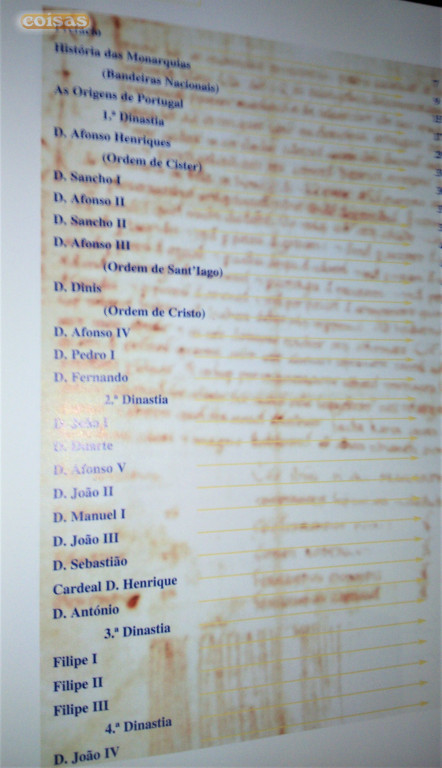 coisas
Prefácio
História das Monarquias
(Bandeiras Nacionais)
As Origens de Portugal
1.ª Dinastia
D. Afonso Henriques
(Ordem de Cister)
D. Sancho I
D. Afonso II
D. Sancho II
D. Afonso III
(Ordem de Sant'Iago)
D. Dinis
(Ordem de Cristo)
D. Afonso IV
D. Pedro I
D. Fernando
2.ª Dinastia
D. João I
D. Duarte
D. Afonso V
D. João II
D. Manuel I
D. João III
D. Sebastião
Cardeal D. Henrique
D. António
3.ª Dinastia
Filipe I
Filipe II
Filipe III
4.ª Dinastia
D. João IV